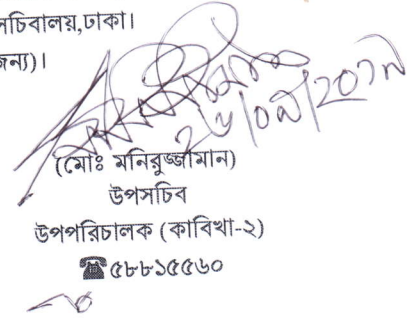 সচিবালয়,ঢাকা।
জন্য)।
(মোঃ মনিরুজ্জামান)
উপসচিব
উপপরিচালক (কাবিখা-২)
☎৫৮৮১৫৫৬০